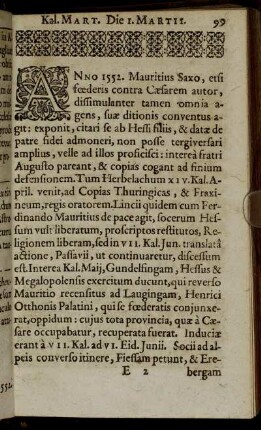 Kal. MART. Die I. MARTII. 99
ANNO 1552. Mauritius Saxo, etsi
fœderis contra Cæsarem autor,
dissimulanter tamen omnia a-
gens, suæ ditionis conventus a-
git: exponit, citari se ab Hessi filiis, & datæ de
patre fidei admoneri, non posse tergiversari
amplius, velle ad illos proficisci: interea fratri
Augusto pareant, & copias cogant ad finium
defensionem. Tum Herbelachum XIV. Kal. A-
pril. venit, ad Copias Thuringicas, & Fraxi-
neum, regis oratorem. Lincii quidem cum Fer-
dinando Mauritius de pace agit, socerum Hes-
sum vult liberatum, proscriptos restitutos, Re-
ligionem liberam, sed in VII. Kal. Jun. translatâ
actione, Passavii, ut continuaretur, discessum
est. Interea Kal. Maij, Gundelfingam, Hessus &
Megalopolensis exercitum ducunt, qui reverso
Mauritio recensitus ad Laugingam, Henrici
Otthonis Palatini, qui se fœderatis conjunxe-
rat, oppidum: cujus tota provincia, quæ à Cæ-
sare occupabatur, recuperata fuerat. Induciæ
erant à VII. Kal. ad VI. Eid. Junii. Socii ad al-
peis converso itinere, Fiessam petunt, & Ere-
E 2 bergam